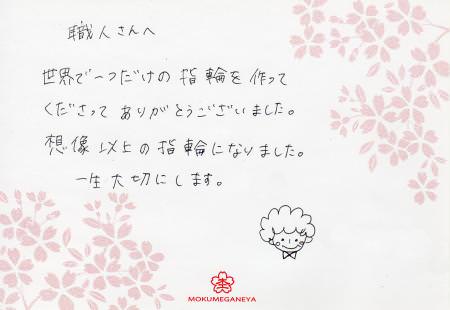 職人さんへ
世界で一つだけの指輪を作って
くださって ありがとうございました。
想像以上の指輪になりました。
一生大切にします。
MOKUMEGANEYA